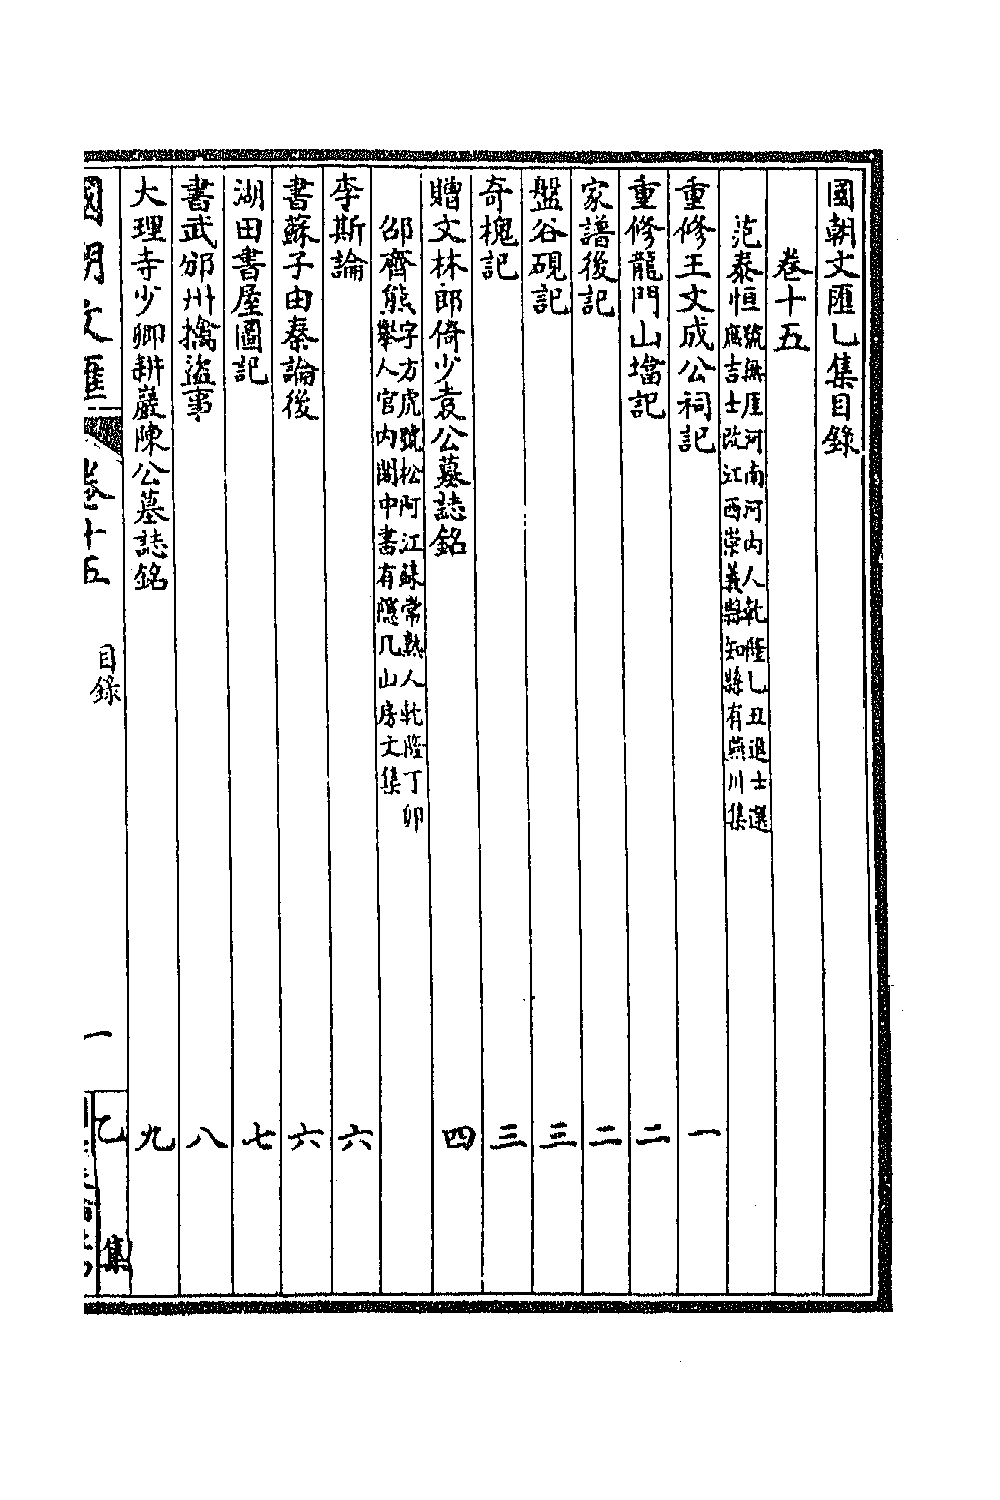 國朝文匯乙集目錄
卷十五
范泰恒號無厓河南河內人乾隆乙丑進士選庶吉士改江西崇義縣知縣有燕川集
重修王文成公祠記 一
重修龍門山壋記 二
家譜後記 二
盤谷硯記 三
奇槐記 三
贈文林郎倚少袁公墓誌銘 四
邵齊熊字方虎號松阿江蘇常熟人乾隆丁卯舉人官內閣中書有隱几山房文集
李斯論 六
書蘇子由秦論後 六
湖田書屋圖記 七
書武邠州擒盜事 八
大理寺少卿耕巖陳公墓誌銘 九
國朝文匯 卷十五 目錄 一 乙集